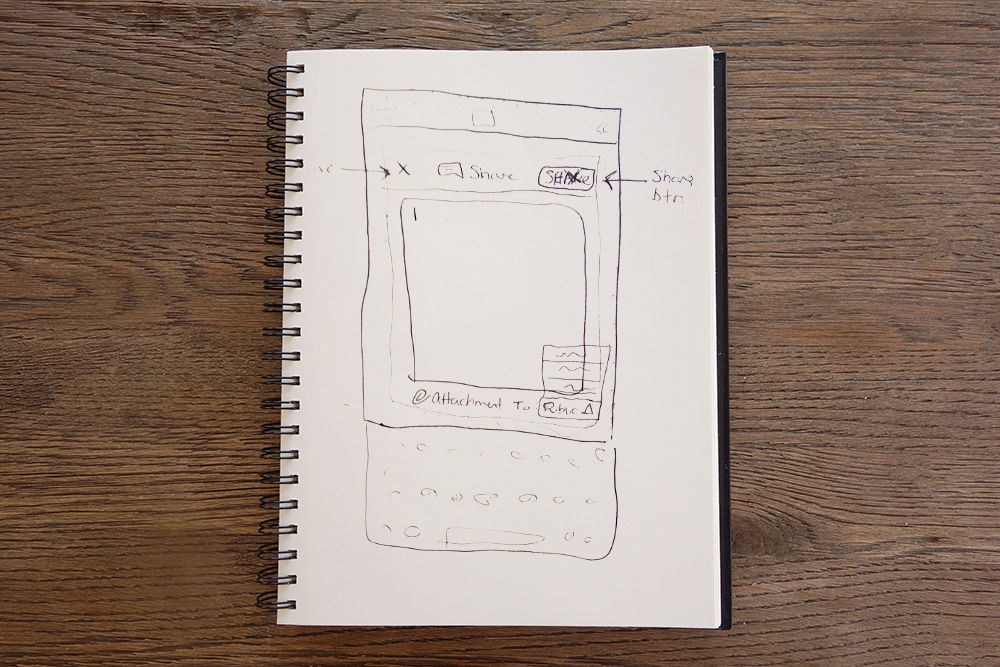 X Share SHARE
Share
btn
@ Attachment To Public